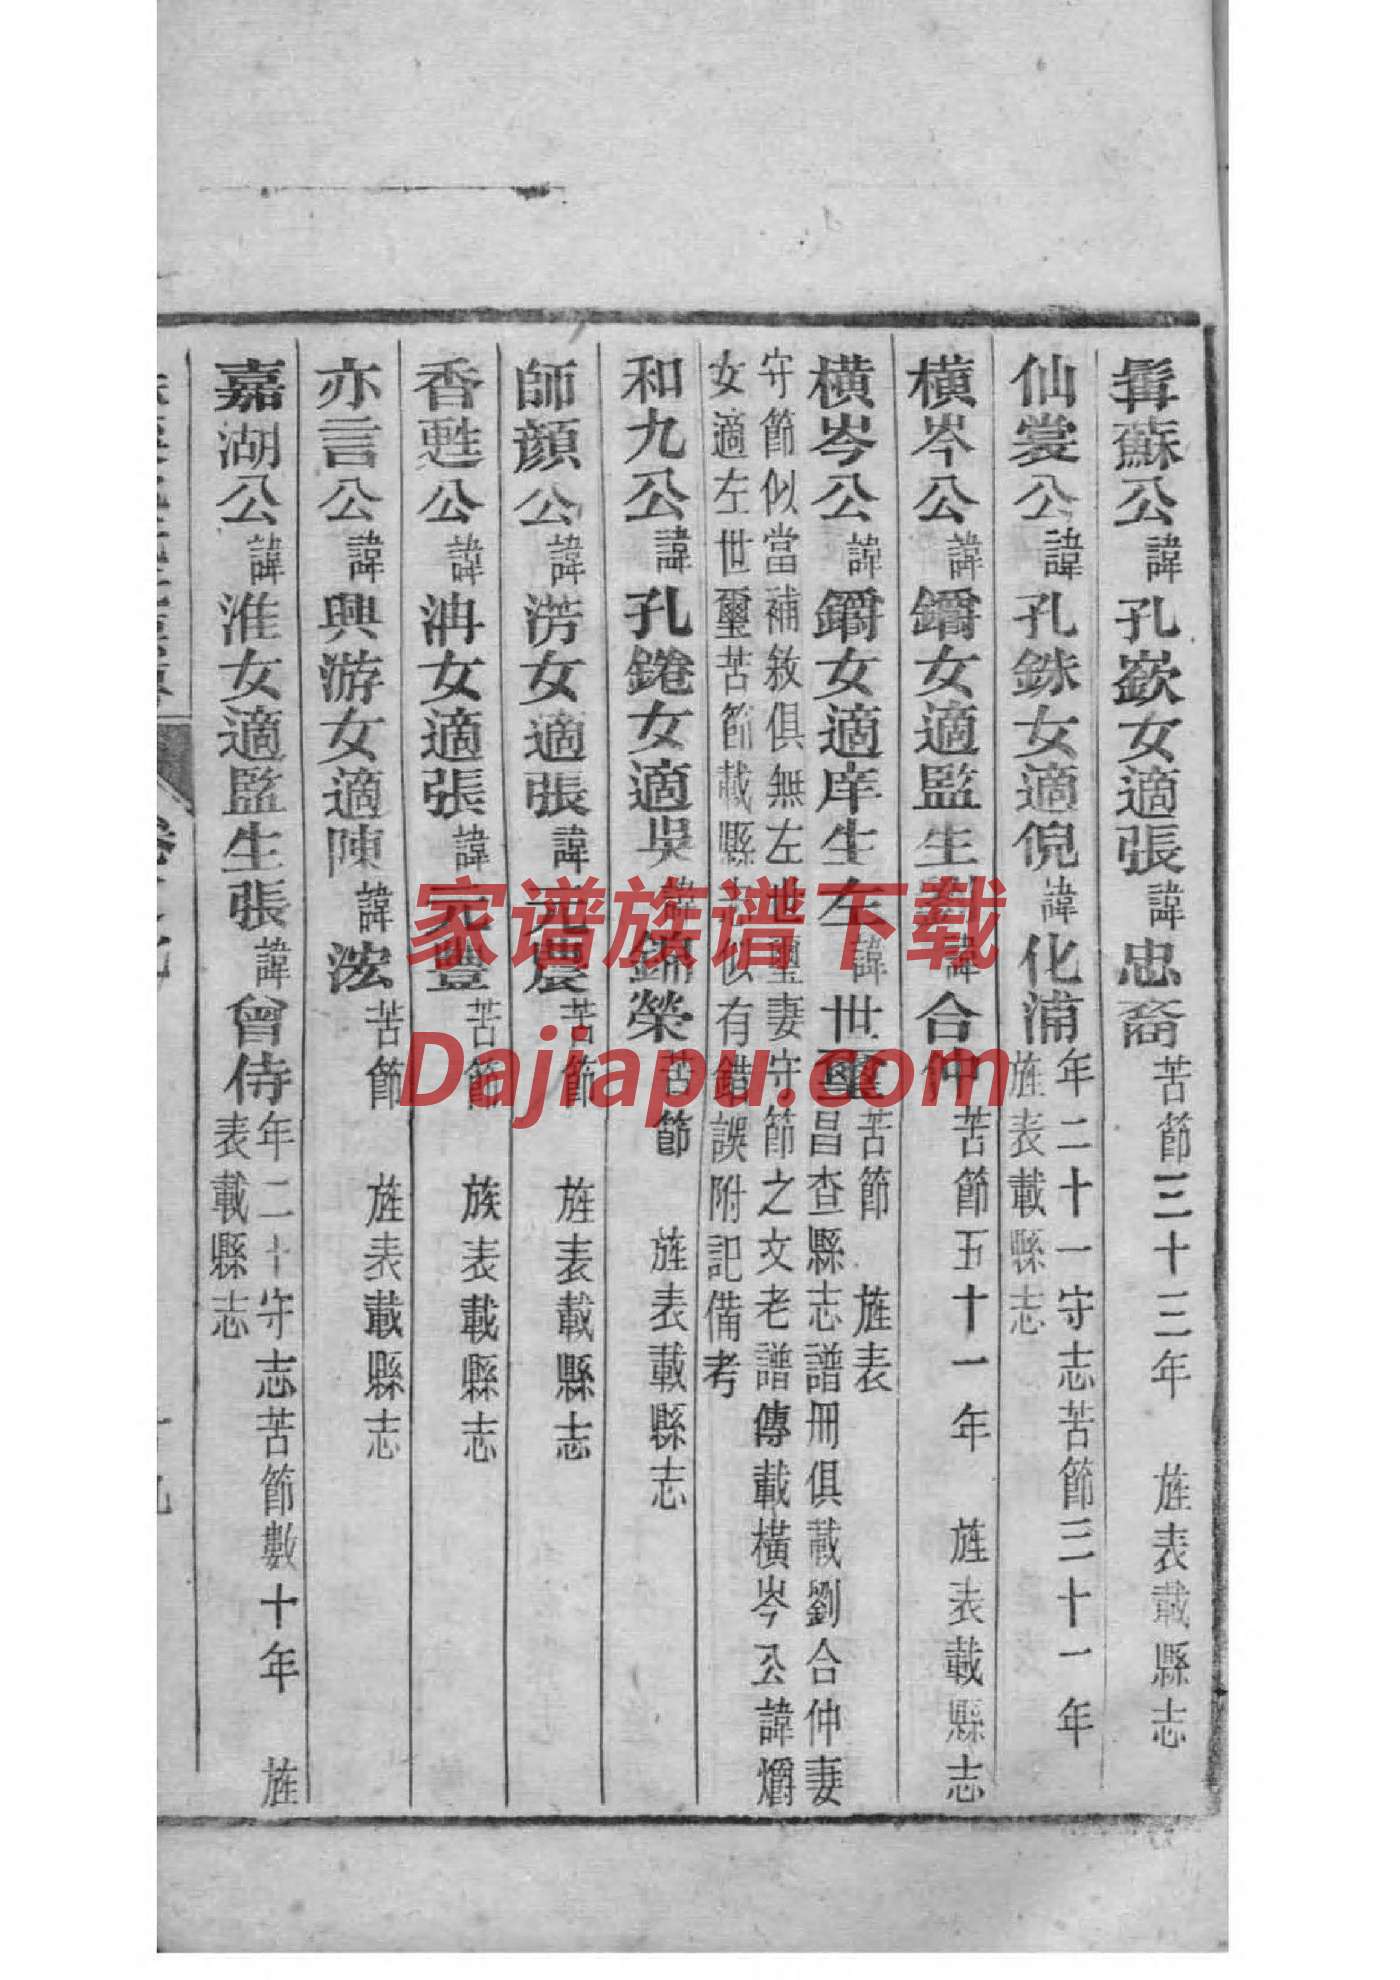 髯蘇公諱孔嶔女適張諱忠裔苦節三十三年 旌表載縣志
仙裳公諱孔銖女適倪諱化浦年二十一守志苦節三十一年
旌表載縣志
橫岑公諱鑘女適監生劉諱合仲苦節五十一年 旌表載縣志
橫岑公諱女適庠生左諱世璽苦節 旌表
昌查縣志譜冊俱載劉合仲妻
守節似當補敘俱無左世璽妻守節之文老譜傳載橫岑公諱爝
女適左世璽苦節載縣志似有錯誤附記備考
和九公諱孔錈女適吳諱錦榮苦節 旌表載縣志
師顏公諱淓女適張諱元農苦節 旌表載縣志
香甦公諱洅女適張諱元豐苦節 族表載縣志
亦言公諱興游女適陳諱浤苦節 旌表載縣志
嘉湖公諱淮女適監生張諱曾侍年二十守志苦節數十年 旌
表載縣志
家谱族谱下载
Dajiapu.com